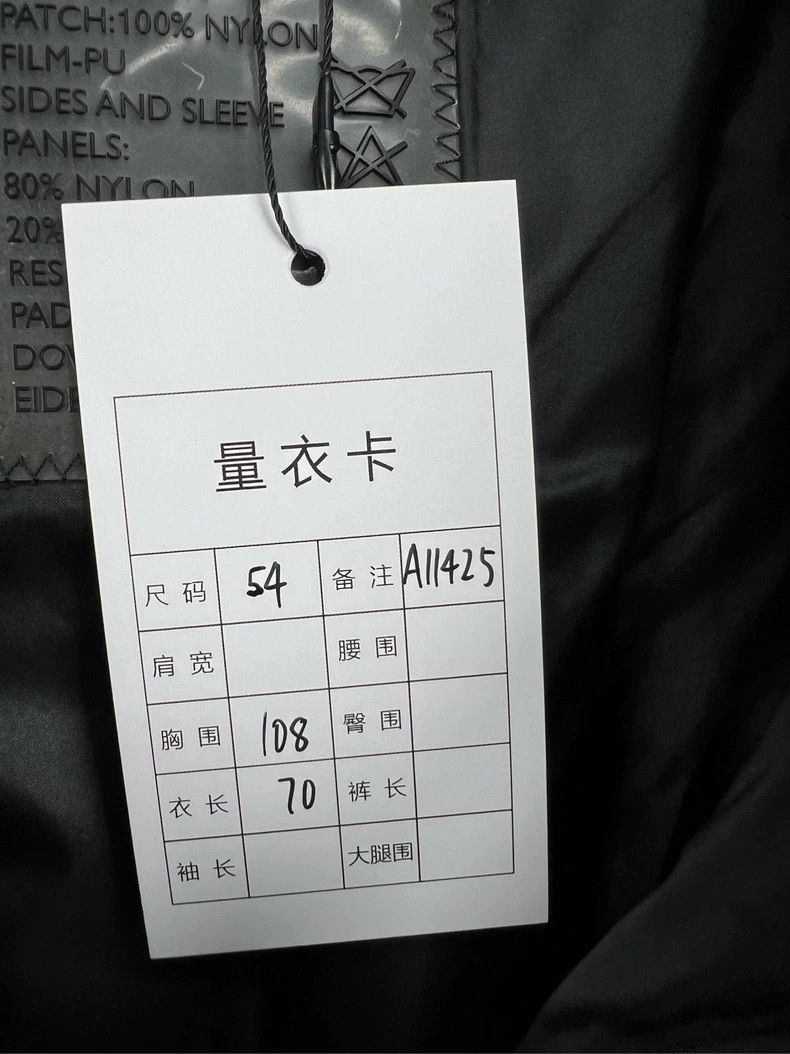 PATCH:100% NYLON
FILM-PU
SIDES AND SLEEVE
PANELS:
80% NYLON
20%
RES
PAD
DOW
EIDE
量衣卡
尺码 54 备注 A11425
肩宽 腰围
胸围 108 臀围
衣长 70 裤长
袖长 大腿围